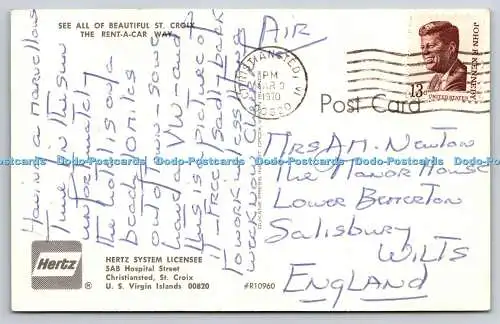 SEE ALL OF BEAUTIFUL ST. CROIX
THE RENT-A-CAR WAY
Having a marvellous
time in the sun
unfortunately
the hotel is on a
beach 10 miles
out of town - so we
had a VW - and
this is picture of
it - Free! Sadly back
to work in less than
week
AIR
CHRISTIANSTED, VI
PM
MAR 3
1970
00820
JOHN F. KENNEDY
13¢
UNITED STATES
Post Card
Mrs A.M. Newton
The Manor House
Lower Bemerton
Salisbury
WILTS
ENGLAND
Hertz
®
HERTZ SYSTEM LICENSEE
5AB Hospital Street
Christiansted, St. Croix
U. S. Virgin Islands 00820
#R10960
Dodo-Postcards Dodo-Postcards Dodo-Postcards Dodo-Postcards Dodo-Postcards Dodo-Postcards